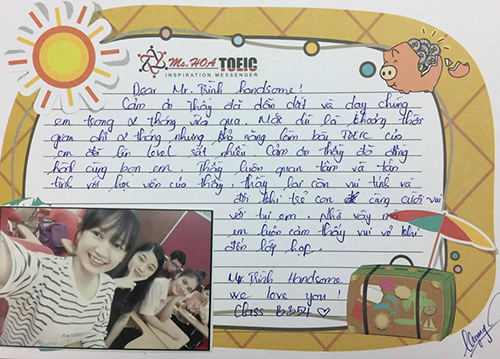 Ms. HOA TOEIC
INSPIRATION MESSENGER
Dear Mr. Trình handsome!
Cảm ơn Thầy đã dẫn dắt và dạy chúng
em trong 2 tháng vừa qua. Mặc dù là khoảng thời
gian chỉ 2 tháng nhưng khả năng làm bài TOEIC của
em đã lên level rất nhiều. Cảm ơn thầy đã đồng
hành cùng bọn em. Thầy luôn quan tâm và tận
tình với học viên của thầy, thầy lại còn vui tính và
đôi khi trẻ con cũng cười vui
với tụi em. Nhờ vậy mà
em luôn cảm thấy vui vẻ khi
đến lớp học.
Mr. Trình Handsome
we love you!
Class B354